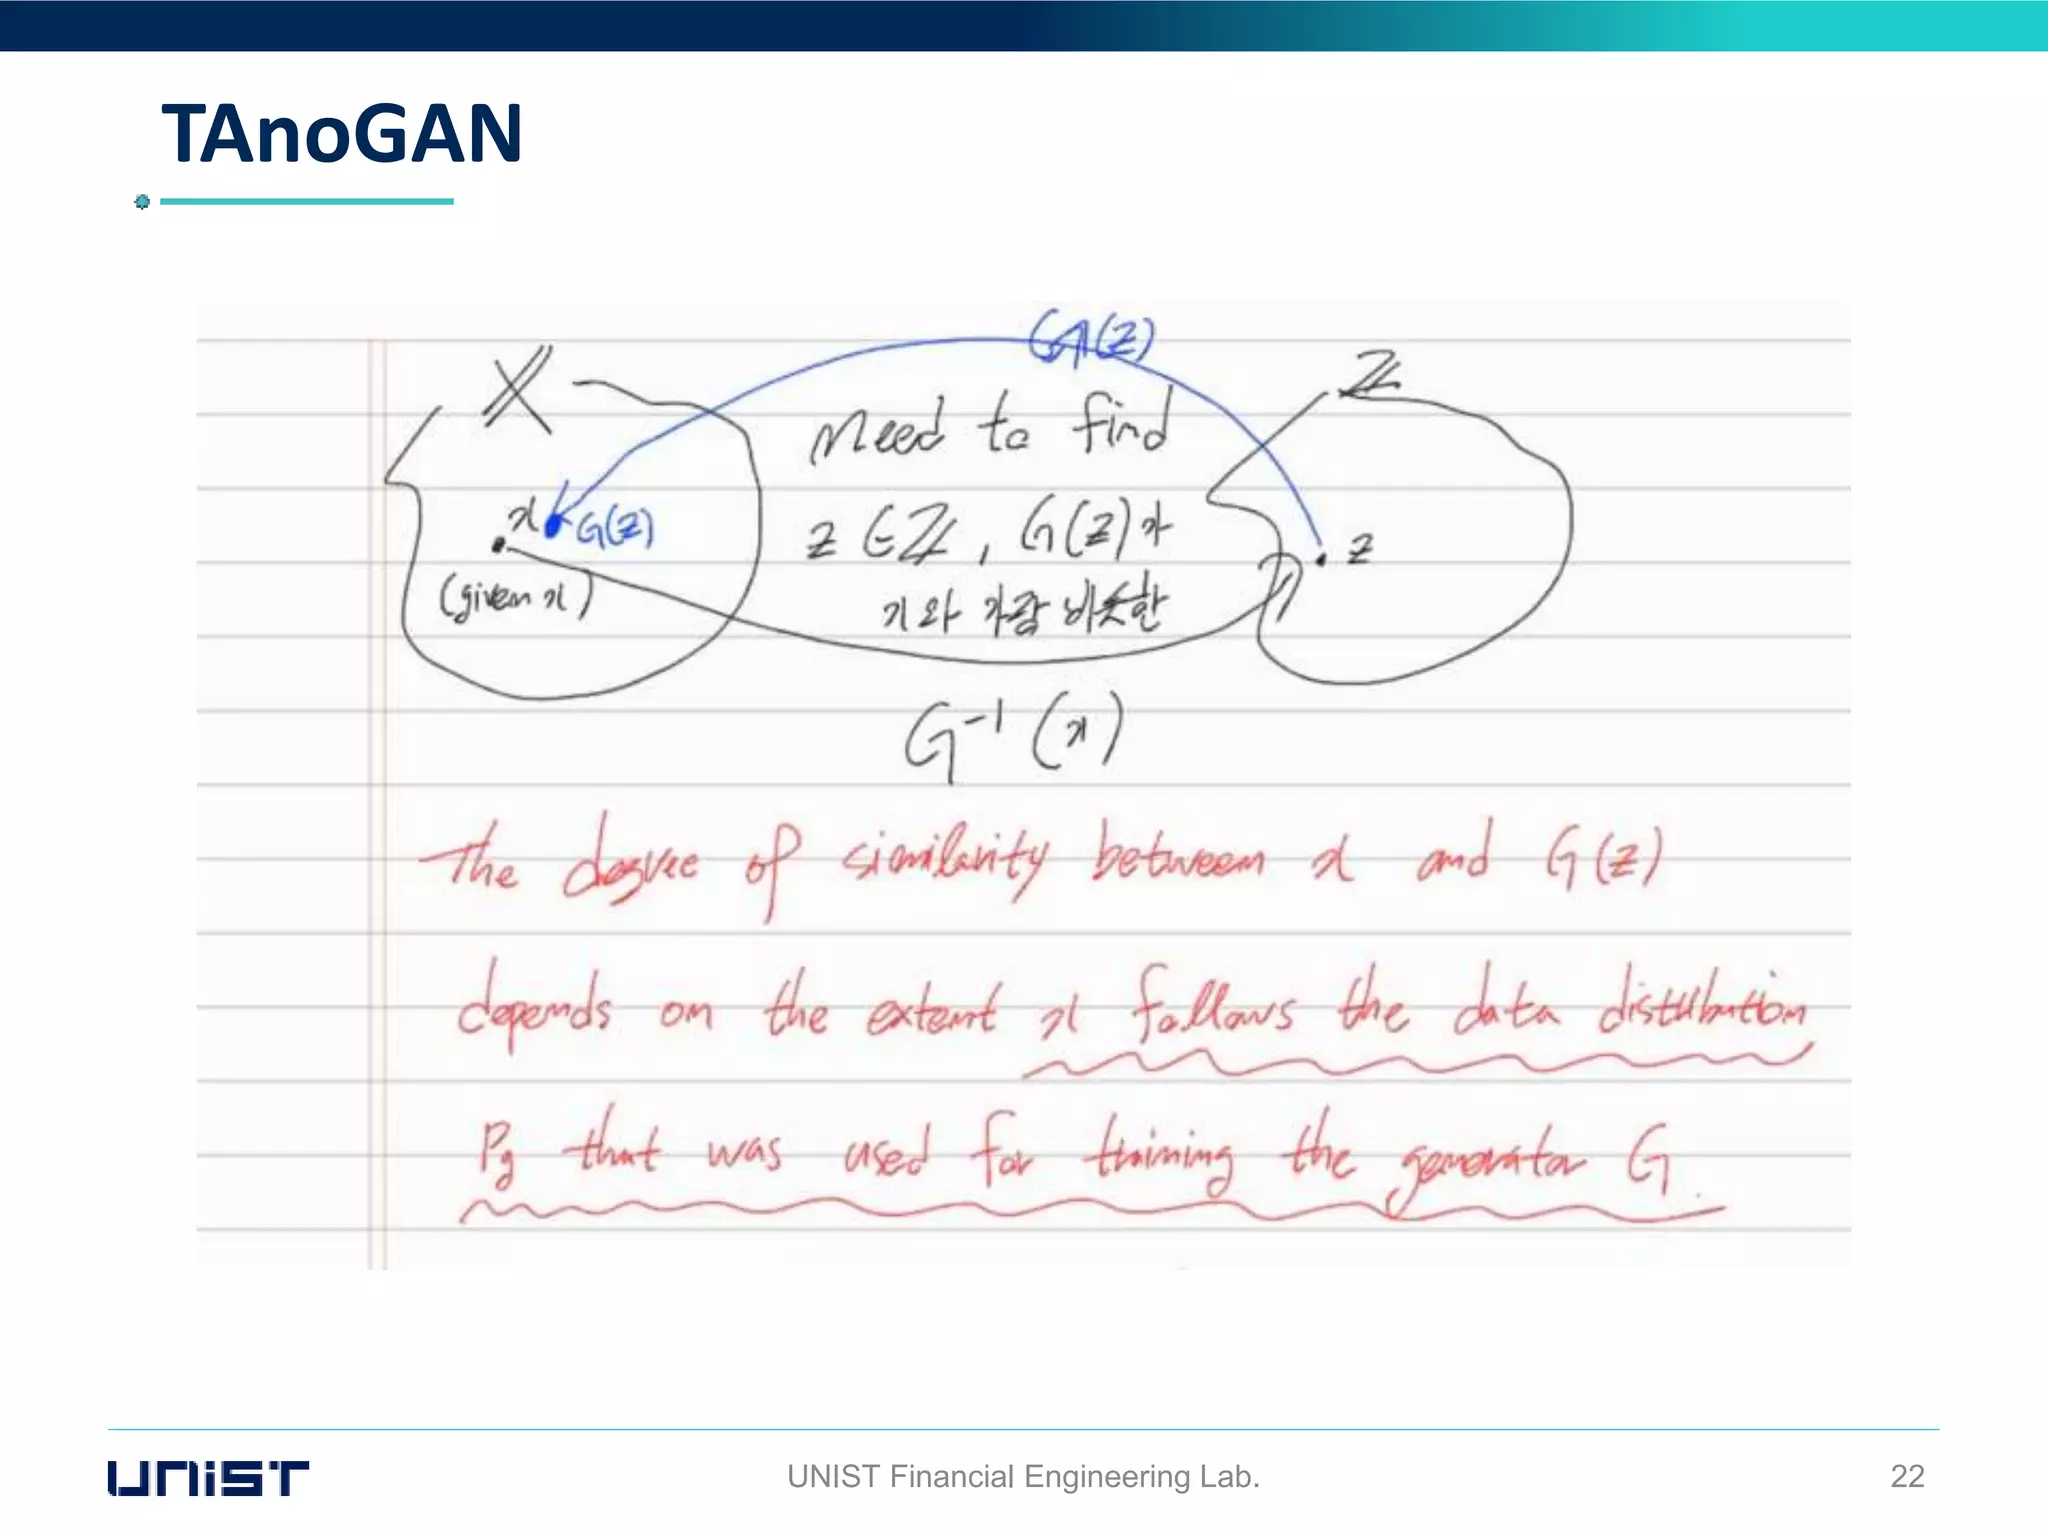 TAnoGAN
G(z)
X
Z
Need to find
x
G(z)
z ∈ Z, G(z)가
z
(given x)
x와 가장 비슷한
G⁻¹(x)
The degree of similarity between x and G(z)
depends on the extent x follows the data distribution
Pg that was used for training the generator G.
UNIST
UNIST Financial Engineering Lab.
22